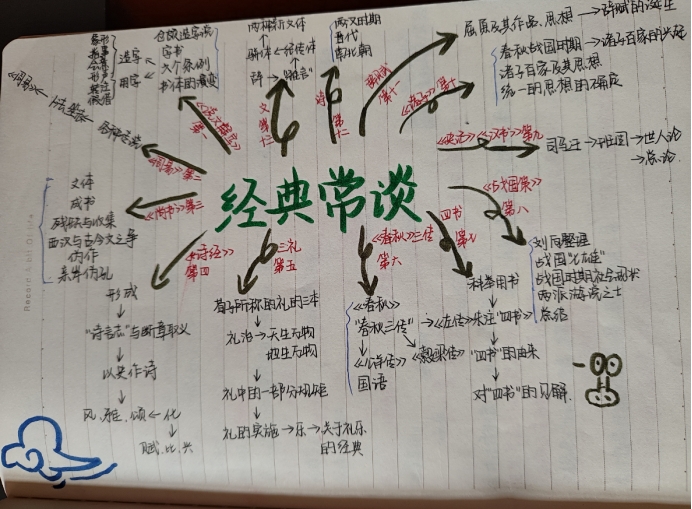 经典常谈
《说文解字》
第一
仓颉造字说
字书
六个条例
书体的演变
造字
用字
象形
指事
会意
形声
转注
假借
《周易》第二
《尚书》第三
文体
成书
残缺与收集
西汉与古今文之争
伪作
《诗经》
第四
形成
"诗言志"与断章取义
以美作诗
风、雅、颂←化
赋、比、兴
三礼
第五
荀子所称的礼的三本
礼治→天生万物
地生万物
礼中的一部分规矩
礼的实施→乐→关于礼乐
的经典
《春秋》三传
第六
《春秋》
"春秋三传"→《左传》
《公羊传》
《榖梁传》
国语
四书
第七
科举用书
朱注"四书"
"四书"的由来
对"四书"的见解
《战国策》
第八
刘向整理
战国"七雄"
战国时期社会形式
总结
《史记》《汉书》第九
司马迁→班固→世人论
→总论
《诸子》第十
春秋战国时期→诸子百家的兴起
诸子百家及其思想
统一的思想的确定
辞赋
第十一
屈原及其作品、思想→辞赋的诞生
诗
第十二
两汉时期
晋代
南北朝
文
第十三
两种新文体
骈体
辞→"雅言"